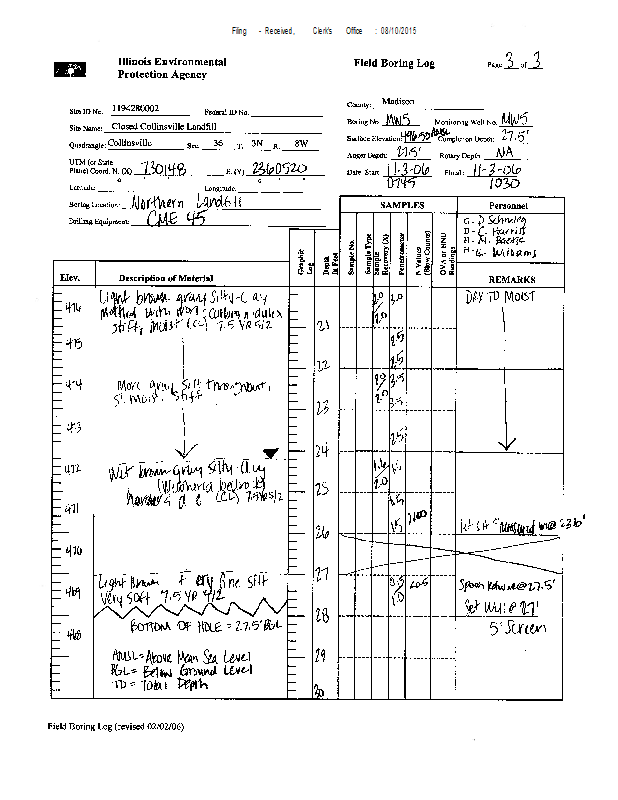 Filing - Received, Clerk's Office : 08/10/2015
Illinois Environmental
Protection Agency
Field Boring Log
Page 3 of 3
Site ID No. 1194280002 Federal ID No.
County: Madison
Boring No. MW5 Monitoring Well No. MW5
Site Name: Closed Collinsville Landfill
Surface Elevation: Completion Depth: 27.5'
Quadrangle: Collinsville Sec. 36 T. 3N R. 8W
Auger Depth: 27.5' Rotary Depth: NA
UTM (or State
Plane) Coord. N. (X) 730148 E. (Y) 2360520
Date: Start 11-3-06 Finish: 11-3-06
0745 1030
Latitude: Longitude:
Boring Location: Northern Landfill
Drilling Equipment: CME 45
SAMPLES
Personnel
G - D Schnieg
D - C. Harris
H - M.
H - G. Williams
Elev.
Description of Material
Graphic Log
Depth In Feet
Sample No.
Sample Type
Sample Recovery (X)
Penetrometer
N Values (Blow Counts)
OVA or HNU Readings
REMARKS
476
Light brown gray silty-Clay
mottled with iron,
stiff, moist (CL) 7.5 YR 5/2
2.0 3.0
2.0
DRY TO MOIST
21
475
2.5
22
2.5
474
More gray silt throughout,
sl. moist, stiff
2.0 3.5
2.0 3.5
23
473
2.5
24
472
Wet brown gray silty clay
(CL) 7.5 YR 5/2
1.6
2.0
25
471
1.5
26
@ 23.6'
470
27
469
Light Brown very fine silt
very soft 7.5 YR 4/2
0.5
1.0
Spoon Refusal @ 27.5'
Set well @ 27'
5' Screen
28
468
BOTTOM OF HOLE = 27.5' BGL
AMSL = Above Mean Sea Level
BGL = Below Ground Level
TD = Total Depth
29
30
Field Boring Log (revised 02/02/06)